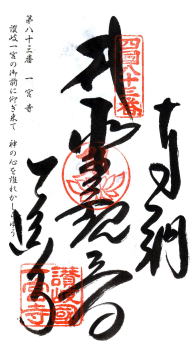 奉納
四國八十三番
聖観音
一宮寺
讃岐國
一宮寺
第八十三番　一宮寺
讃岐一宮の御前に仰ぎ来て　神の心を誰れかしらゆう